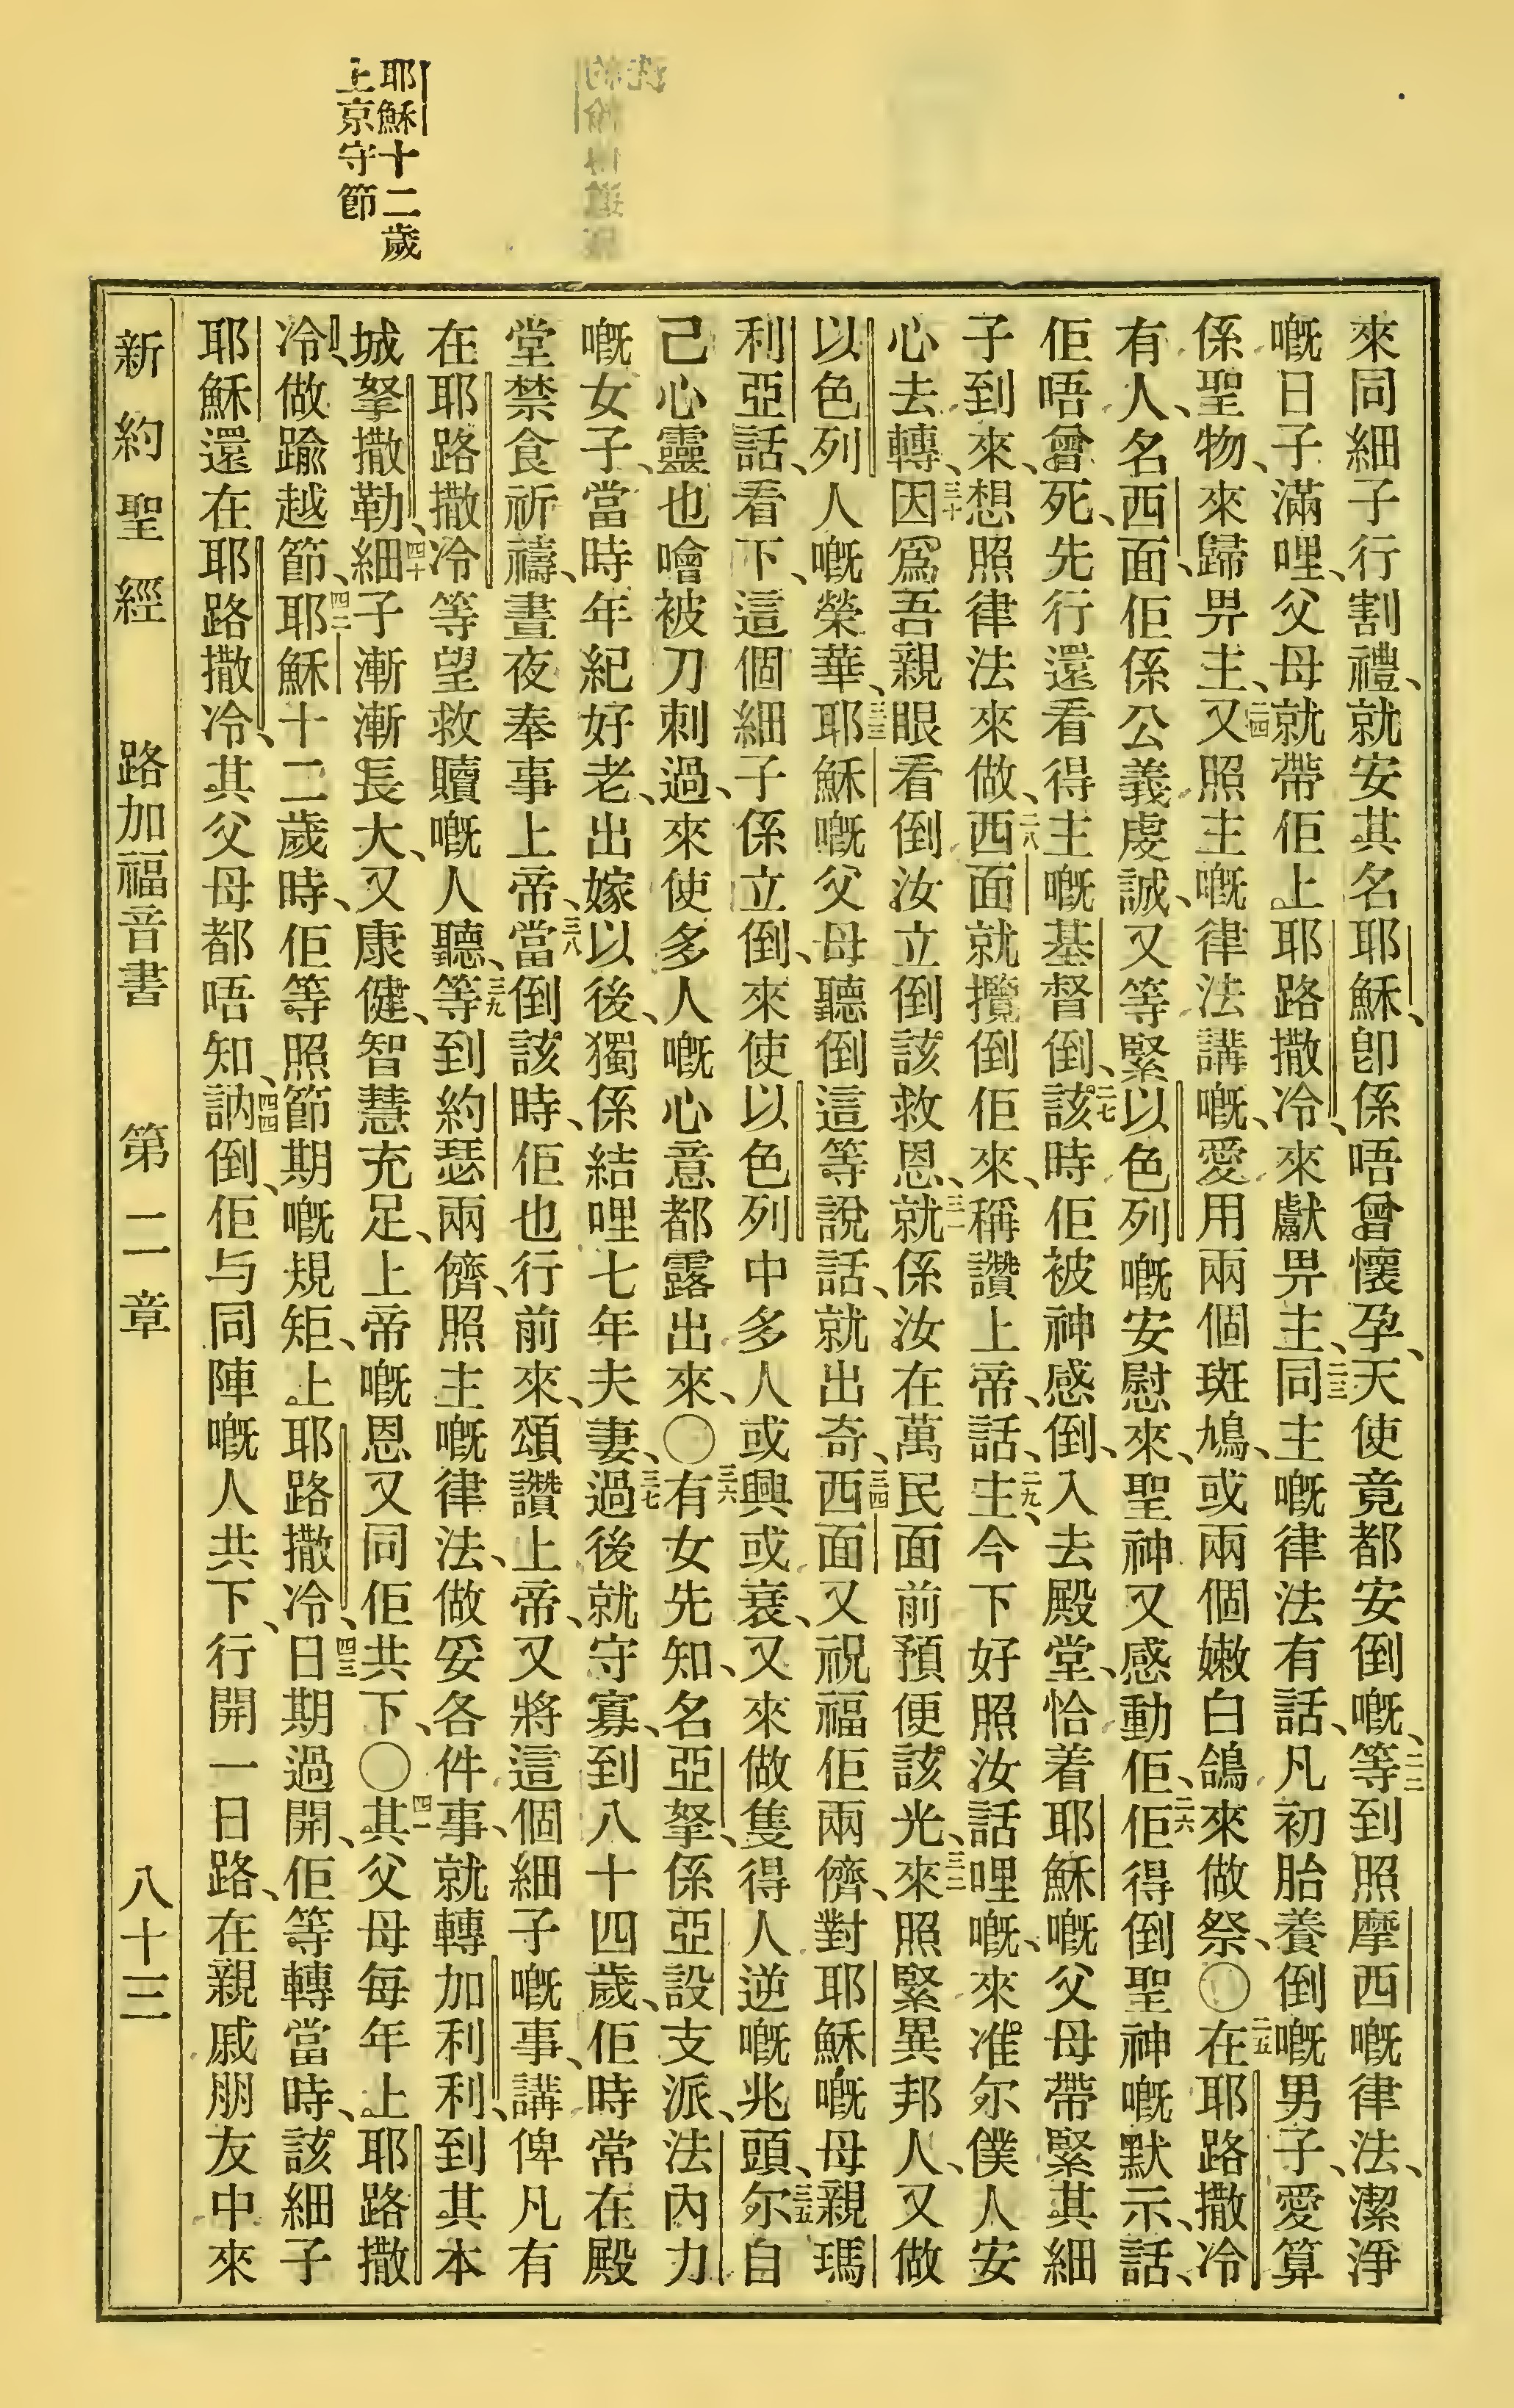 耶穌十二歲
上京守節
來同細子行割禮、就安其名耶穌、卽係唔曾懷孕、天使竟都安倒嘅、二二等到照摩西嘅律法、潔淨
嘅日子滿哩、父母就帶佢上耶路撒冷、來獻畀主、二三同主嘅律法有話、凡初胎養倒嘅男子、愛算
係聖物、來歸畀主、二四又照主嘅律法講嘅、愛用兩個斑鳩、或兩個嫩白鴿來做祭、〇二五在耶路撒冷
有人、名西面、佢係公義虔誠、又等緊以色列嘅安慰來、聖神又感動佢、二六佢得倒聖神嘅默示、話、
佢唔曾死、先行還看得主嘅基督倒、二七該時佢被神感倒、入去殿堂、恰着耶穌嘅父母帶緊其細
子到來、想照律法來做、二八西面就攬倒佢來、稱讚上帝、話、二九主、今下好照汝話哩嘅、來准尔僕人安
心去轉、三十因爲吾親眼看倒汝立倒該救恩、三一就係汝在萬民面前預便該光、三二來照緊異邦人、又做
以色列人嘅榮華、三三耶穌嘅父母聽倒這等說話、就出奇、三四西面又祝福佢兩儕、對耶穌嘅母親瑪
利亞話、看下、這個細子係立倒、來使以色列中多人或興或衰、又來做隻得人逆嘅兆頭、三五尔自
己心靈也噲被刀刺過、來使多人嘅心意都露出來、〇三六有女先知、名亞拏、係亞設支派、法內力
嘅女子、當時年紀好老、出嫁以後、獨係結哩七年夫妻、三七過後就守寡、到八十四歲、佢時常在殿
堂禁食祈禱、晝夜奉事上帝、三八當倒該時、佢也行前來、頌讚上帝、又將這個細子嘅事、講俾凡有
在耶路撒冷等望救贖嘅人聽、三九等到約瑟兩儕、照主嘅律法、做妥各件事、就轉加利利、到其本
城拏撒勒、四十細子漸漸長大、又康健、智慧充足、上帝嘅恩又同佢共下、〇四一其父母每年上耶路撒
冷、做踰越節、四二耶穌十二歲時、佢等照節期嘅規矩、上耶路撒冷、四三日期過開、佢等轉當時、該細子
耶穌還在耶路撒冷、其父母都唔知、四四訥倒、佢与同陣嘅人共下、行開一日路、在親戚朋友中來
新約聖經　路加福音書　第二章　八十三